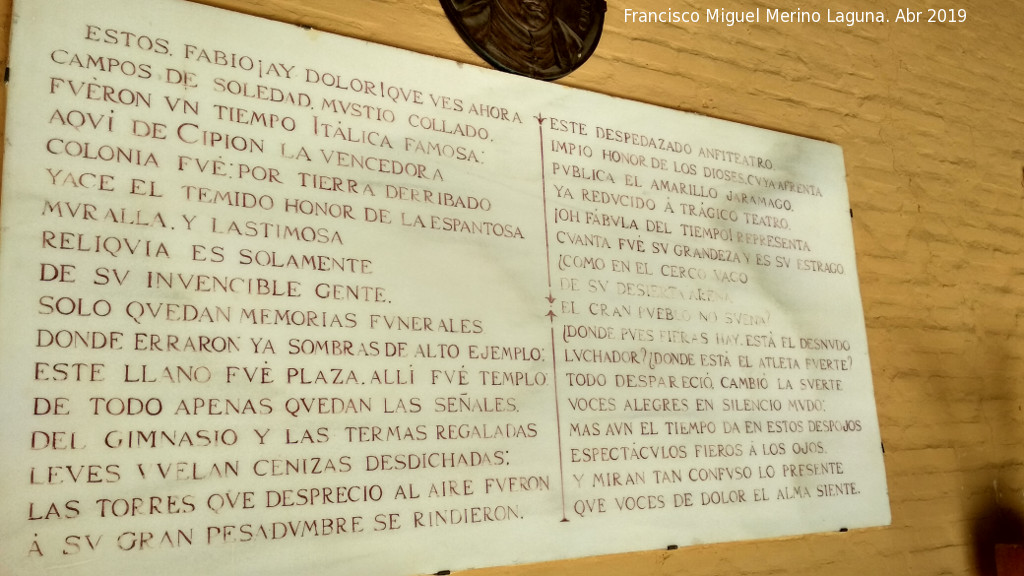 Francisco Miguel Merino Laguna. Abr 2019
ESTOS, FABIO ¡AY DOLOR! QVE VES AHORA
CAMPOS DE SOLEDAD, MVSTIO COLLADO,
FVÈRON VN TIEMPO ITÁLICA FAMOSA;
AQVÍ DE CIPION LA VENCEDORA
COLONIA FVÉ: POR TIERRA DERRIBADO
YACE EL TEMIDO HONOR DE LA ESPANTOSA
MVRALLA, Y LASTIMOSA
RELIQVIA ES SOLAMENTE
DE SV INVENCIBLE GENTE.
SOLO QVEDAN MEMORIAS FVNERALES
DONDE ERRARON YA SOMBRAS DE ALTO EJEMPLO:
ESTE LLANO FVÉ PLAZA, ALLÍ FVÉ TEMPLO:
DE TODO APENAS QVEDAN LAS SEÑALES.
DEL GIMNASIO Y LAS TERMAS REGALADAS
LEVES VVELAN CENIZAS DESDICHADAS;
LAS TORRES QVE DESPRECIO AL AIRE FVERON
Á SV GRAN PESADVMBRE SE RINDIERON.
ESTE DESPEDAZADO ANFITEATRO,
IMPIO HONOR DE LOS DIOSES, CVYA AFRENTA
PVBLICA EL AMARILLO JARAMAGO,
YA REDVCIDO Á TRÁGICO TEATRO,
¡OH FÁBVLA DEL TIEMPO! REPRESENTA
CVANTA FVÉ SV GRANDEZA Y ES SV ESTRAGO.
¿COMO EN EL CERCO VACO
DE SV DESIERTA ARENA
EL GRAN PVEBLO NO SVENA?
¿DONDE PVES FIERAS HAY, ESTÁ EL DESNVDO
LVCHADOR? ¿DONDE ESTÁ EL ATLETA FVERTE?
TODO DESPARECIÓ, CAMBIÓ LA SVERTE
VOCES ALEGRES EN SILENCIO MVDO:
MAS AVN EL TIEMPO DA EN ESTOS DESPOJOS
ESPECTÁCVLOS FIEROS Á LOS OJOS.
Y MIRAN TAN CONFVSO LO PRESENTE
QVE VOCES DE DOLOR EL ALMA SIENTE.